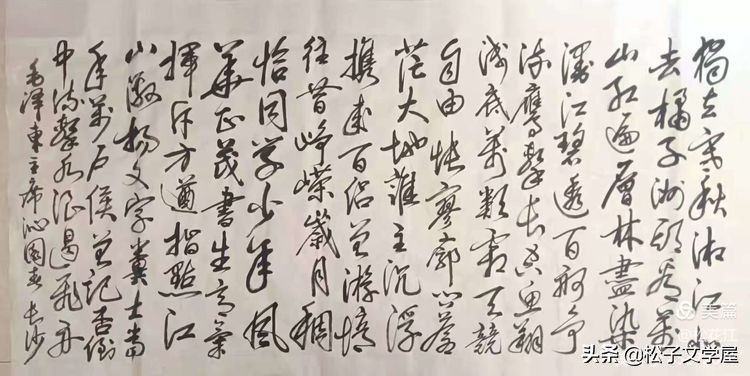 獨立寒秋湘江北
去橘子洲頭看萬
山紅遍層林盡染
漫江碧透百舸爭
流鷹擊長空魚翔
淺底萬類霜天競
自由悵寥廓問蒼
茫大地誰主沉浮
攜來百侶曾游憶
往昔崢嶸歲月稠
恰同學少年風
華正茂書生意氣
揮斥方遒指點江
山激揚文字糞土當
年萬戶侯曾記否到
中流擊水浪遏飛舟
毛澤東主席沁園春長沙
美篇
@松花江
头条 @松子文学屋